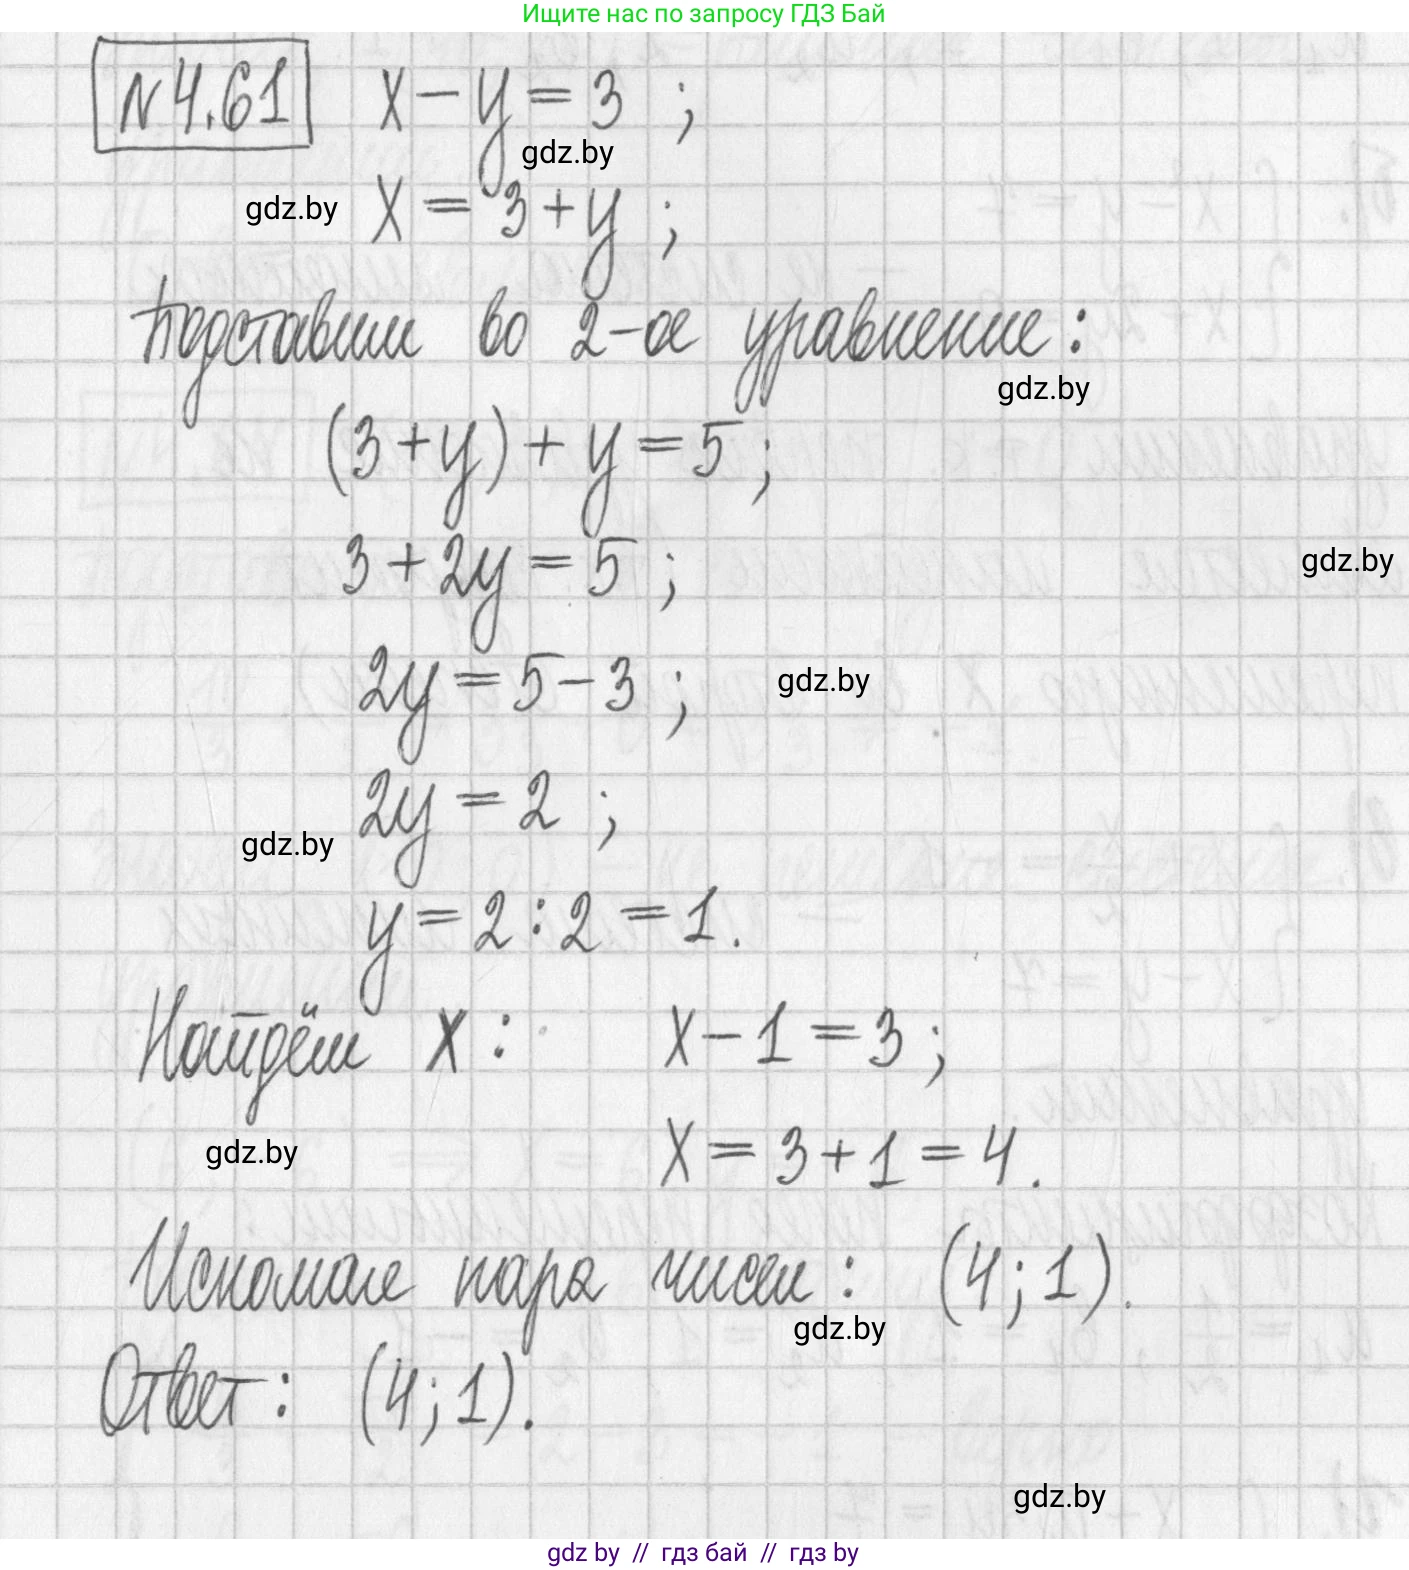 Ищите нас по запросу ГДЗ Бай
N4.61 x - y = 3 ;
gdz.by
gdz.by x = 3 + y ;
Подставим во 2-ое уравнение :
gdz.by
(3 + y) + y = 5 ;
3 + 2y = 5 ;
gdz.by
2y = 5 - 3 ;
gdz.by
2y = 2 ;
gdz.by
y = 2 : 2 = 1 .
Найдём x : x - 1 = 3 ;
gdz.by
x = 3 + 1 = 4 .
Искомая пара чисел : (4 ; 1) .
gdz.by
Ответ : (4 ; 1) .
gdz.by
gdz by // гдз бай // гдз by